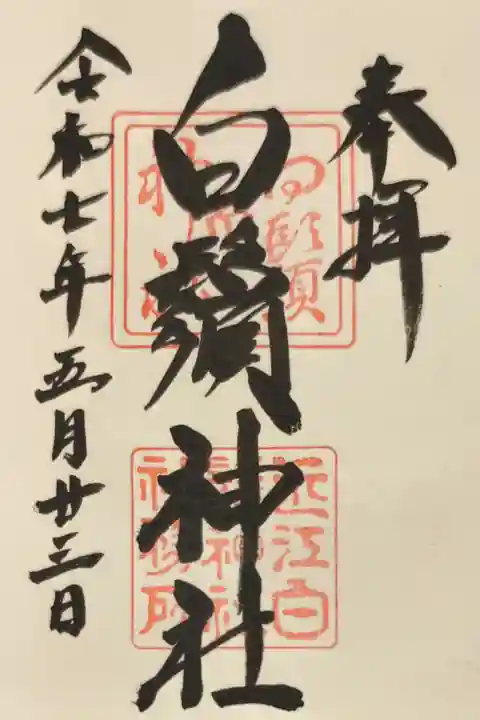 奉拝
白鬚神社
令和七年五月廿三日
近江白
鬚神社
社務所